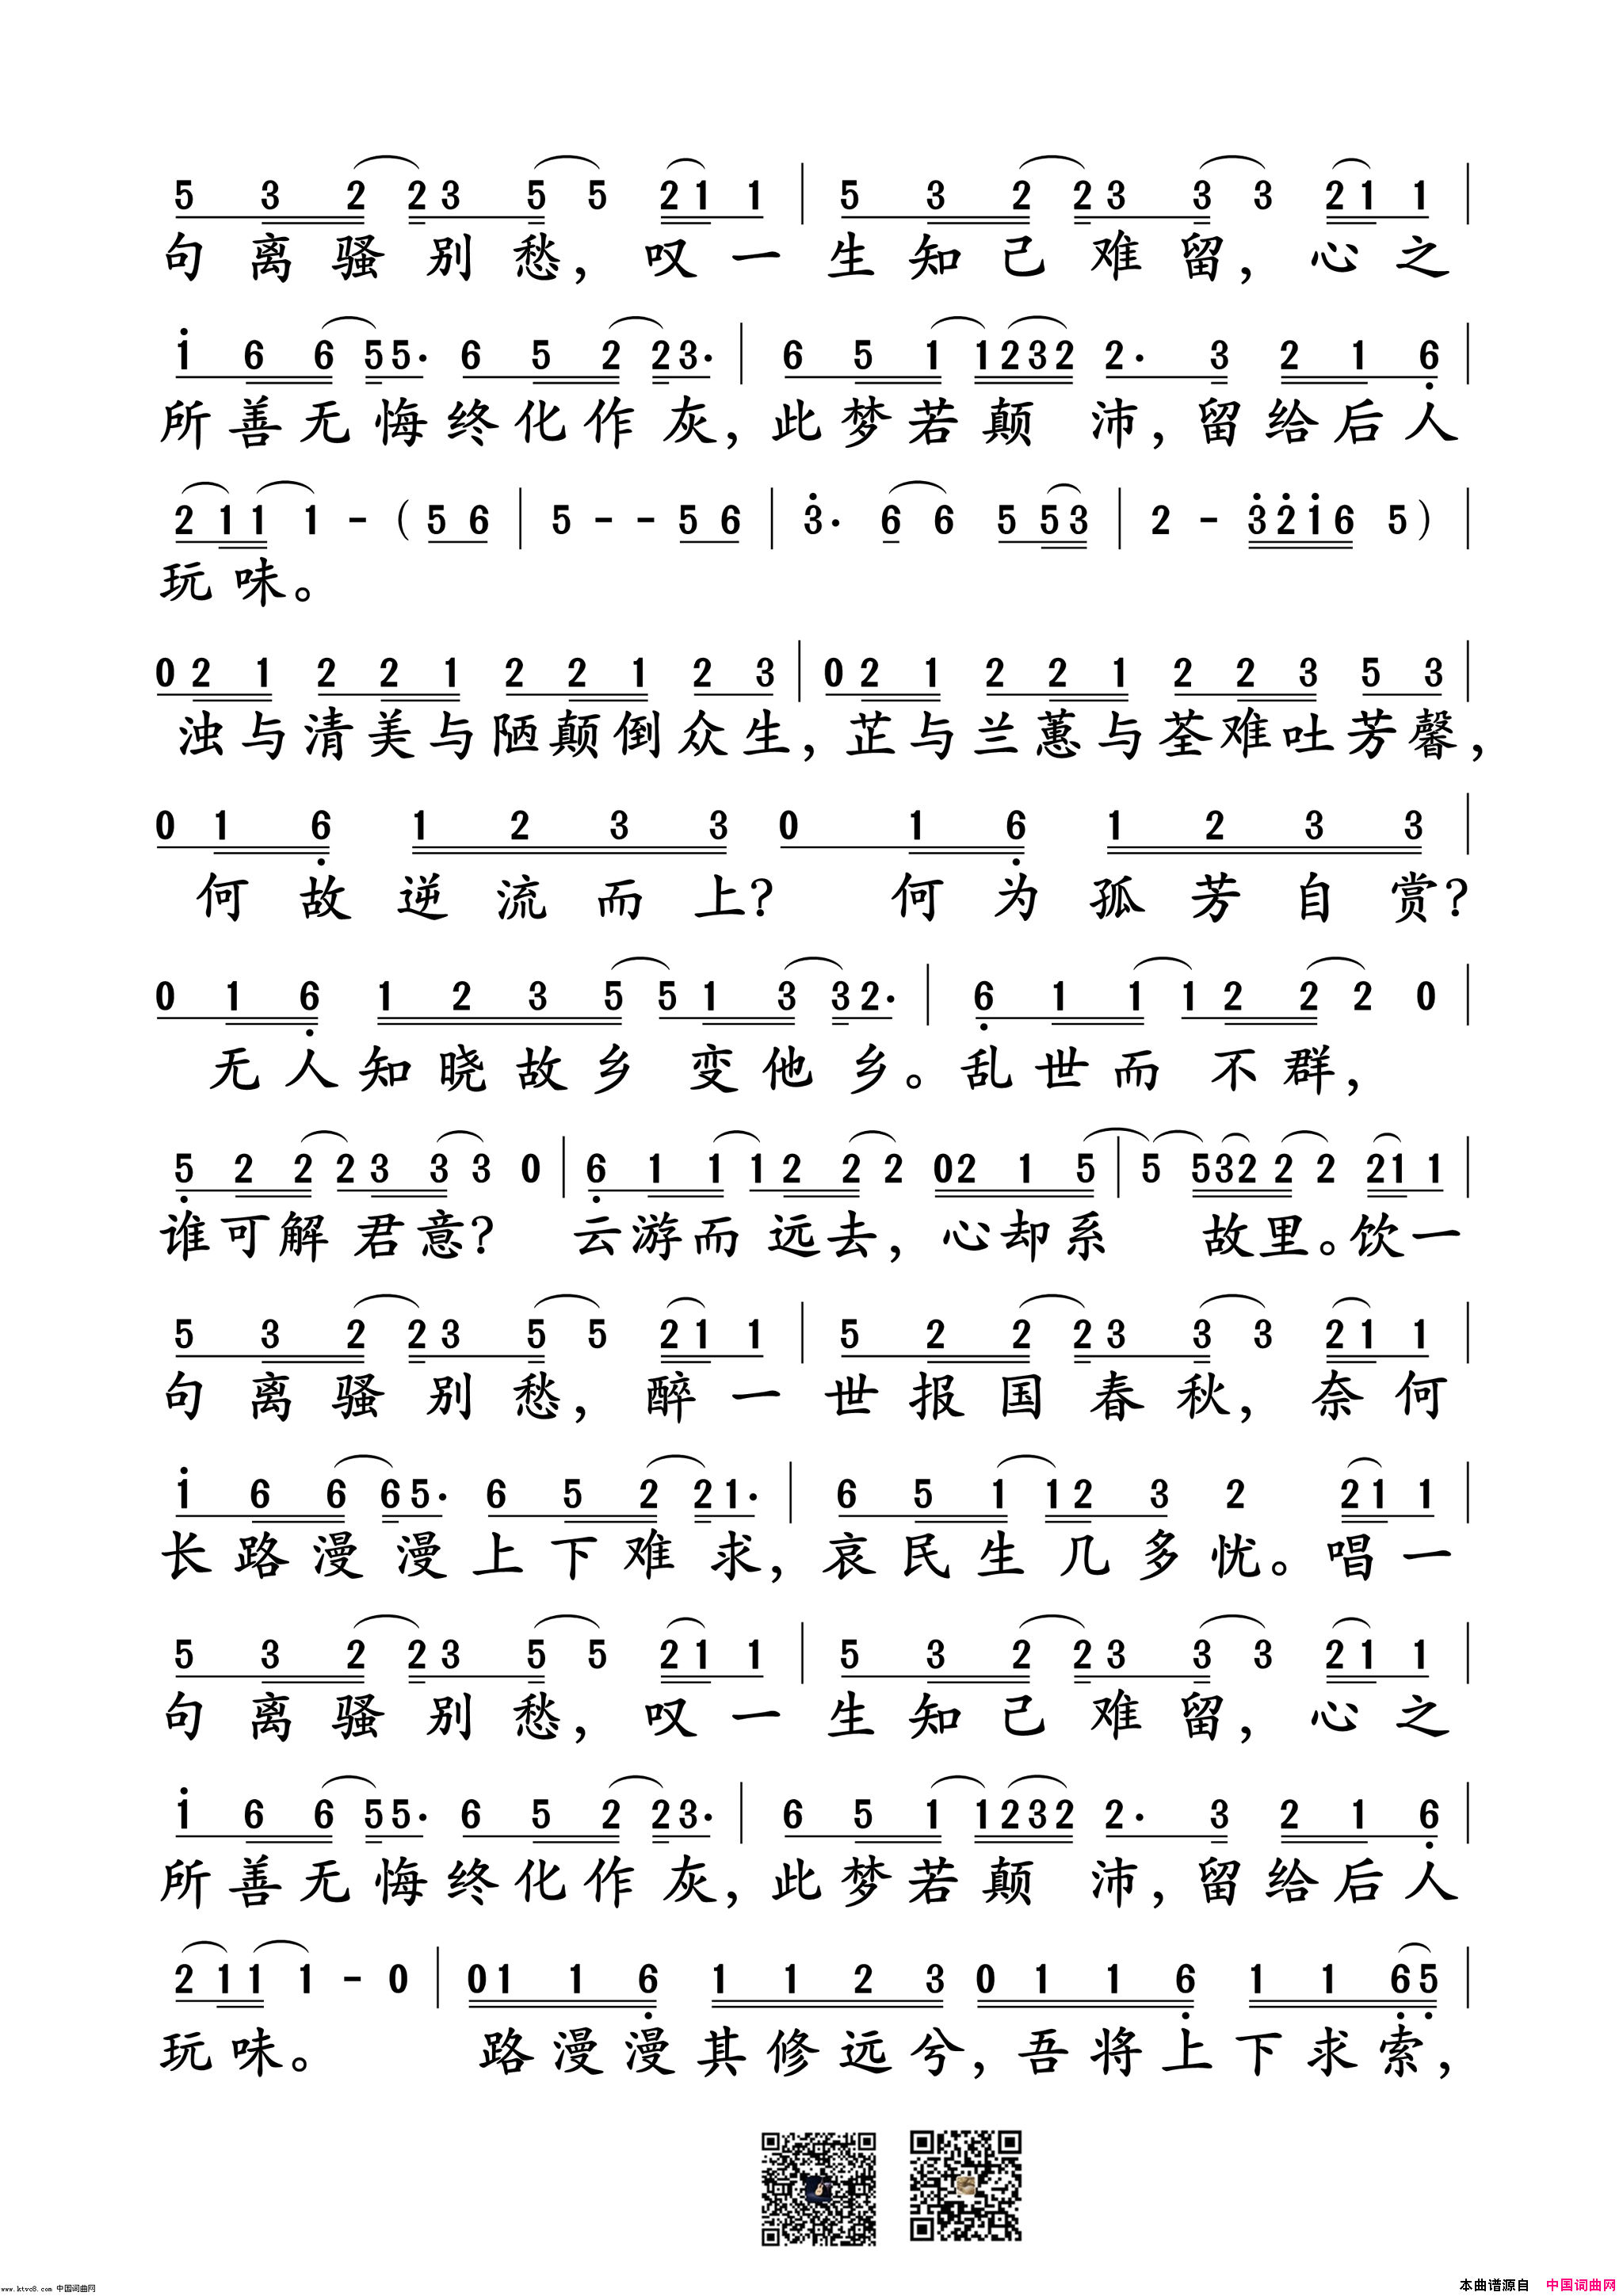 5 3 2 2 3 5 5 2 1 1 | 5 3 2 2 3 3 3 2 1 1 |
句离骚别愁，叹一生知己难留，心之
1 6 6 5 5. 6 5 2 2 3. | 6 5 1 1 2 3 2 2. 3 2 1 6 |
所善无悔终化作灰，此梦若颠沛，留给后人
2 1 1 1 - (5 6 | 5 - - 5 6 | 3. 6 6 5 5 3 | 2 - 3 2 1 6 5) |
玩味。
0 2 1 2 2 1 2 2 1 2 3 | 0 2 1 2 2 1 2 2 3 5 3 |
浊与清美与陋颠倒众生，芷与兰蕙与荃难吐芳馨，
0 1 6 1 2 3 3 0 1 6 1 2 3 3 |
何故逆流而上？何为孤芳自赏？
0 1 6 1 2 3 5 5 1 3 3 2. | 6 1 1 1 2 2 2 0 |
无人知晓故乡变他乡。乱世而不群，
5 2 2 2 3 3 3 0 | 6 1 1 1 2 2 2 0 2 1 5 | 5 5 3 2 2 2 2 1 1 |
谁可解君意？云游而远去，心却系故里。饮一
5 3 2 2 3 5 5 2 1 1 | 5 2 2 2 3 3 3 2 1 1 |
句离骚别愁，醉一世报国春秋，奈何
1 6 6 6 5. 6 5 2 2 1. | 6 5 1 1 2 3 2 2 1 1 |
长路漫漫上下难求，哀民生几多忧。唱一
5 3 2 2 3 5 5 2 1 1 | 5 3 2 2 3 3 3 2 1 1 |
句离骚别愁，叹一生知己难留，心之
1 6 6 5 5. 6 5 2 2 3. | 6 5 1 1 2 3 2 2. 3 2 1 6 |
所善无悔终化作灰，此梦若颠沛，留给后人
2 1 1 1 - 0 | 0 1 1 6 1 1 2 3 0 1 1 6 1 1 6 5 |
玩味。路漫漫其修远兮，吾将上下求索，
www.ktvc8.com 中国词曲网
本曲谱源自 中国词曲网